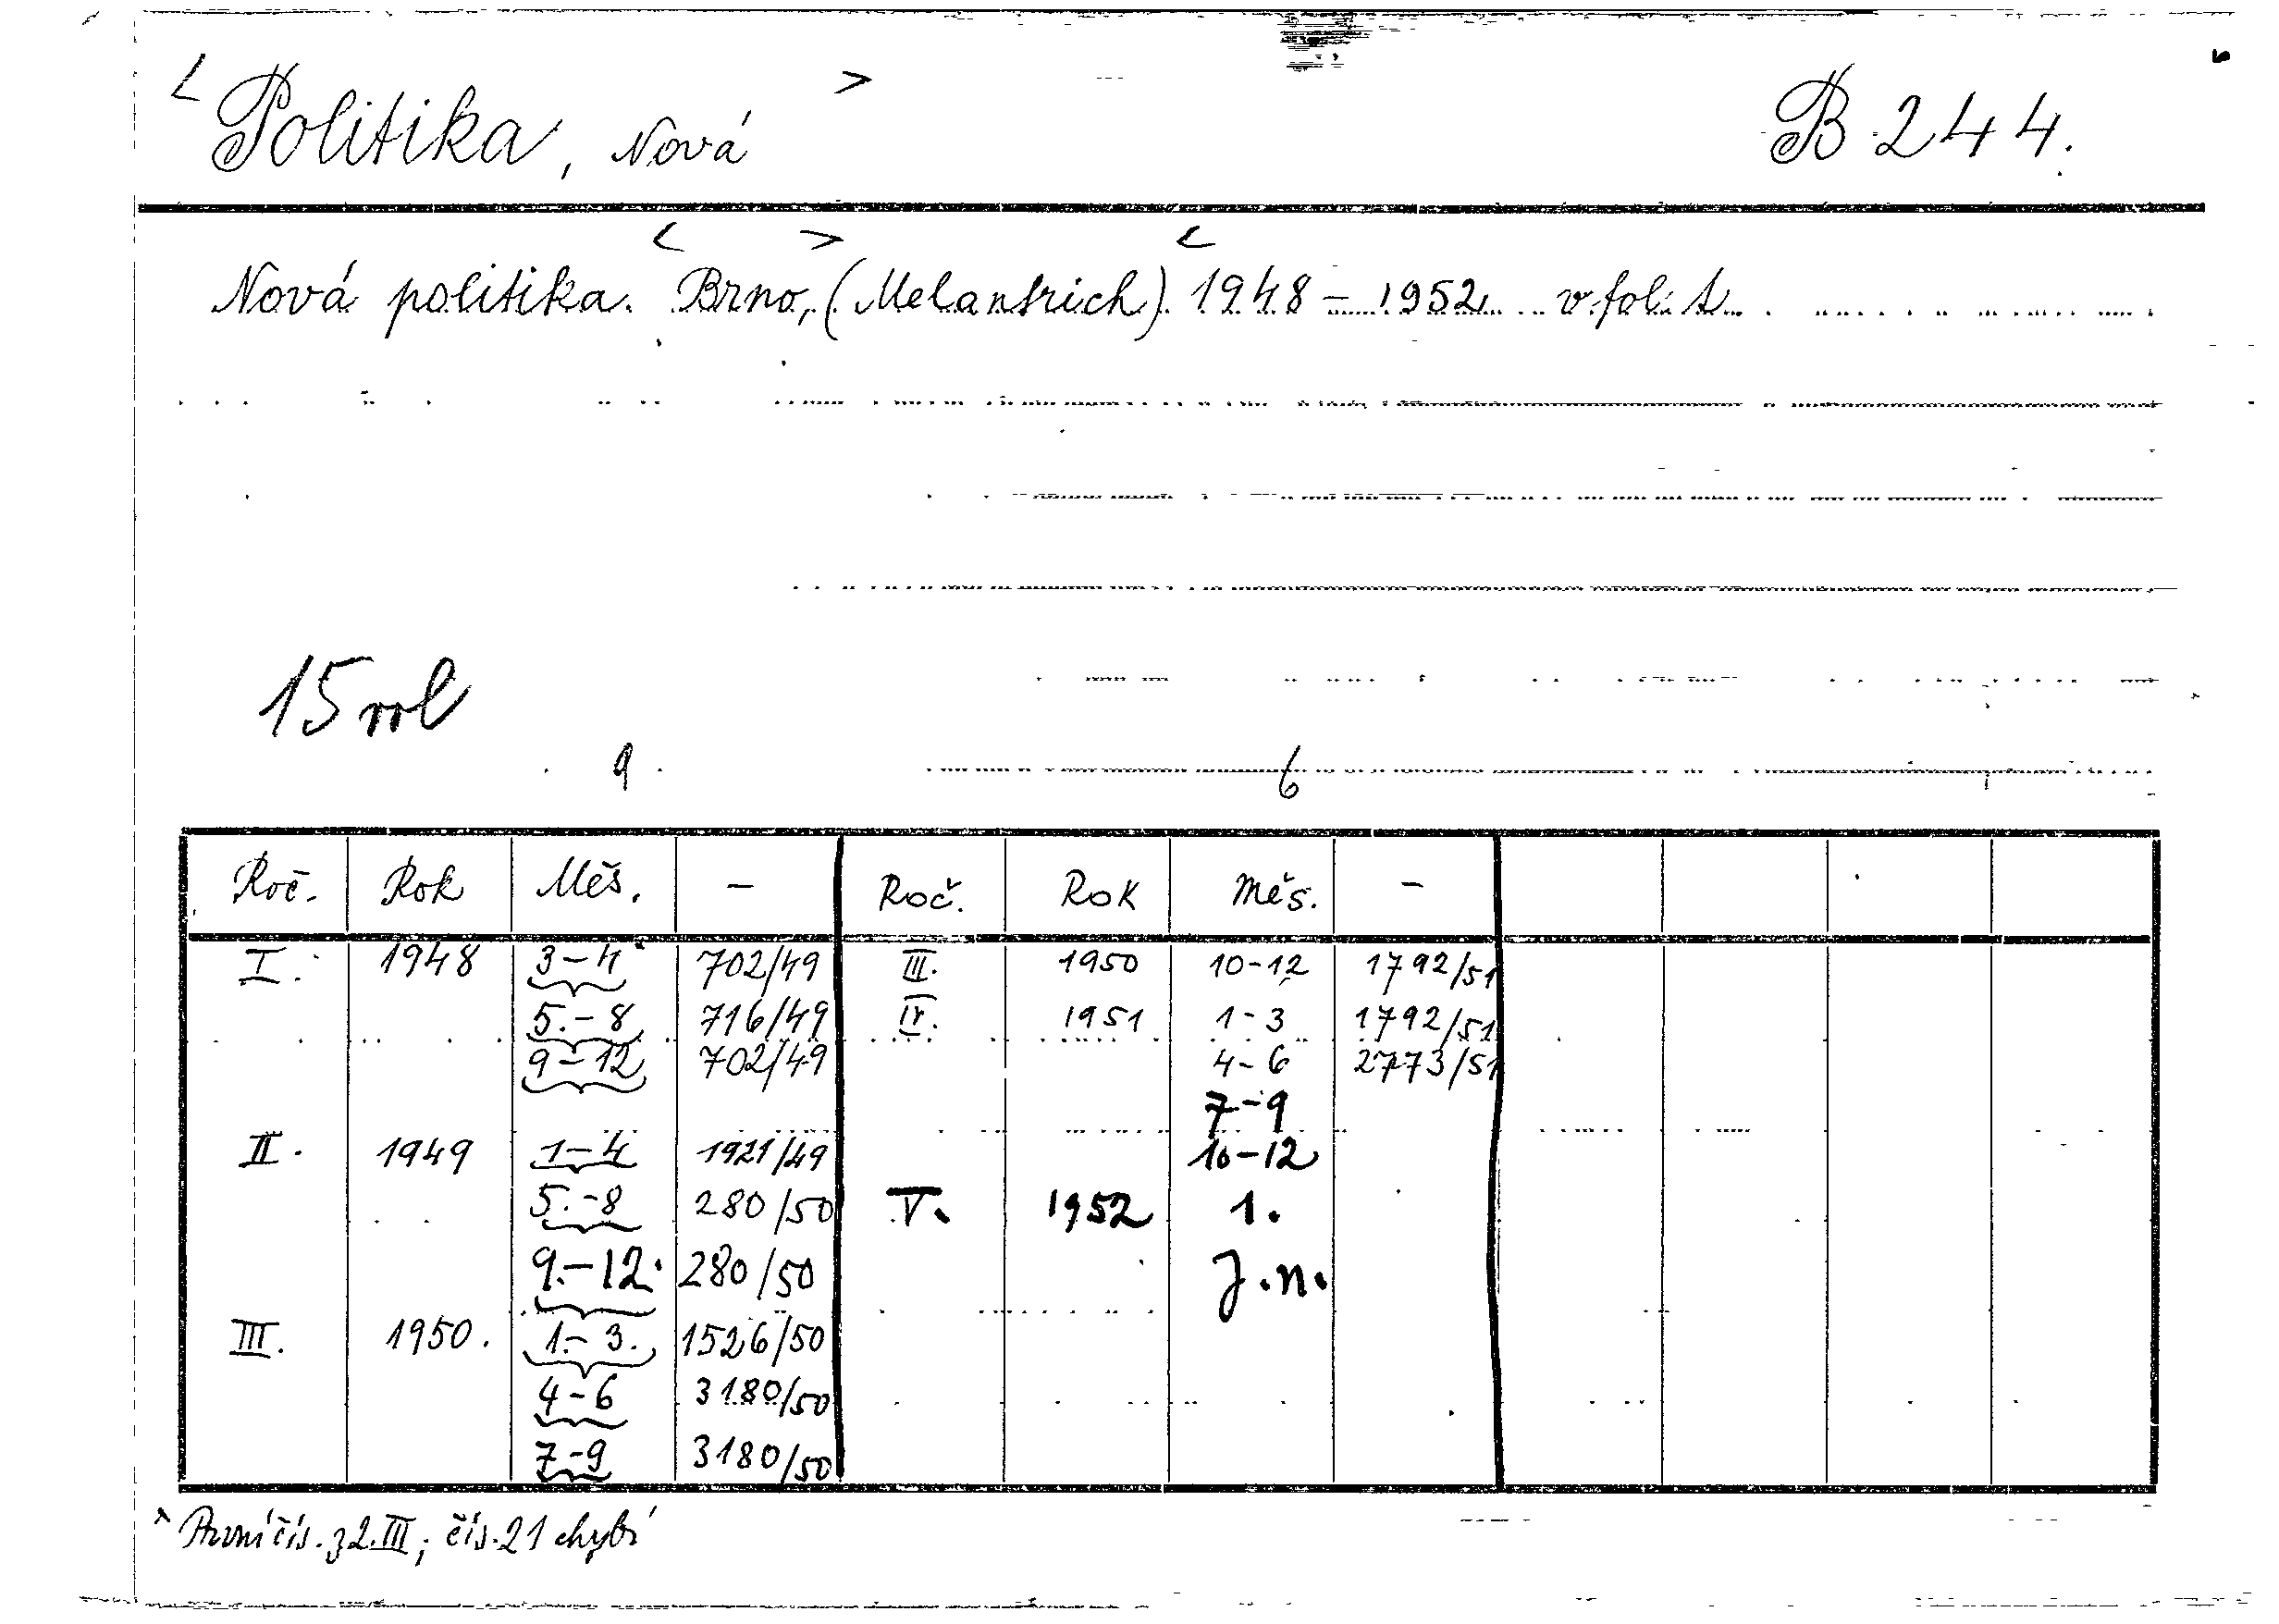 < Politika, Nová > B 244.
Nová politika. <Brno,> (Melantrich) <1948 – 1952 v fol.
15 rol
9 6
Roč. Rok Měs. – Roč. Rok Měs. –
I. 1948 3–4 702/49 III. 1950 10–12 1792/51
5.–8 716/49 IV. 1951 1–3 1792/51
9–12 702/49 4–6 2773/51
7–9
II. 1949 1–4 1921/49 10–12
5.–8 280/50 V. 1952 1.
9.–12. 280/50 J.n.
III. 1950. 1.–3. 1526/50
4–6 3180/50
7–9 3180/50
× První čís. z 2.III; čís. 21 chybí